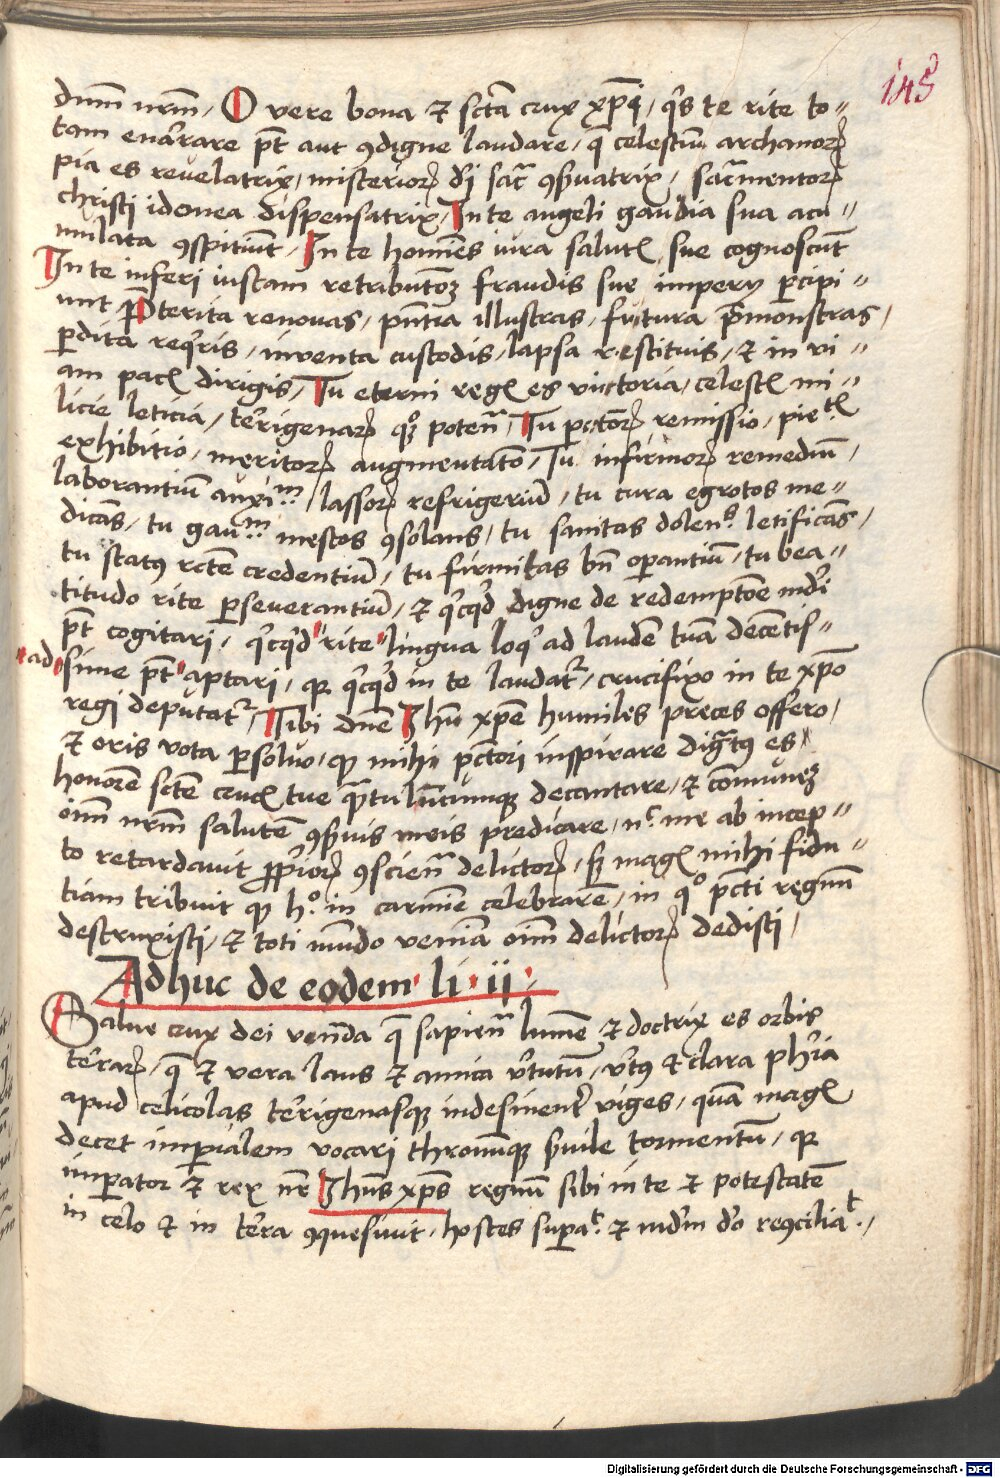 145
dnm̄ nrm̄. O vere bona et sctā crux xp̄i, q's te rite to=
tam enarrare pt̄ aut ꝯdigne laudare, q̄ celestiū archanoꝝ
pia es revelatrix, misterioꝝ di sac̄ ꝯẜuatrix, sac̄mentoꝝ
christi idonea dispensatrix, In te angeli gaudia sua acu=
mulata ꝯspitiūt, In te homīes iura salutꝭ sue cognoscūt
In te inferi iustam retributōꝫ fraudis sue impery ꝑcipi=
unt P̄terita renovas, pn̄tia illustras, futura p̄monstras,
ꝑdita req'ris, inventa custodis, lapsa restituis, et in vi=
am pacꝭ dirigis, Tu eterni regꝭ es victoria, celestꝭ mi=
licie leticia, terrigenaꝝ qꝫ poten̄, Tu pctōꝝ remissio, pietꝭ
exhibitio, meritoꝝ augmentatō, Tu infirmoꝝ remediū,
laborantiū auxiᵐ, lassoꝝ refrigeriū, tu cura egrotos me=
dicās, tu gauᵐ mestos ꝯsolans, tu sanitas dolenˢ letificās,
tu statꝰ rctē credentiū, tu firmitas bn̄ oꝑantiū, tu bea=
titudo rite ꝑseverantiū, et q'cq'd digne de redemptōe mdi
pt̄ cogitari, q'cq'd rite lingua loq' ad laudē tuā decētis=
ad sime pt̄ aptari, qꝫ q'cq'd in te laudatᷣ, crucifixo in te xpō
regi deputatᷣ, Tibi dnē Ihū xpē humiles preces offero,
et oris vota ꝑsolvo, qꝫ mihi pctōri inspirare digtꝰ es
honorē sctē crucꝭ tue qͣtulūcumqꝫ decantare, et cōmunēꝫ
oīm nrm̄ salutē ꝯẜuis meis predicare, nᶜ me ab incep=
to retardavit ꝓprioꝝ ꝯscien̄ delictoꝝ, sꝫ magꝭ mihi fidu=
tiam tribuit qꝫ hᵒ in carmīe celebrarē, in qᵒ pctī regnū
destruxisti, et toti mūdo veniā oīm delictoꝝ dedisti,
Adhuc de eodem li ii
Salve crux dei venda q̄ sapien̄ lumē et doctrix es orbis
terraꝝ, q̄ et vera laus et amica v'tutū, v'tꝰ et clara ph'ia
apud celicolas terrigenasqꝫ indesinent̄ viges, quā magꝭ
decet imꝑialem vocari thronūqꝫ ẜuile tormentū, qꝫ
imꝑator et rex nr̄ Ihūs xp̄s regnū sibi in te et potestatē
in celo et in terra ꝯquesivit, hostes suꝑaᵗ et mdm̄ do reꝯciliaᵗ,
Digitalisierung gefördert durch die Deutsche Forschungsgemeinschaft - DFG